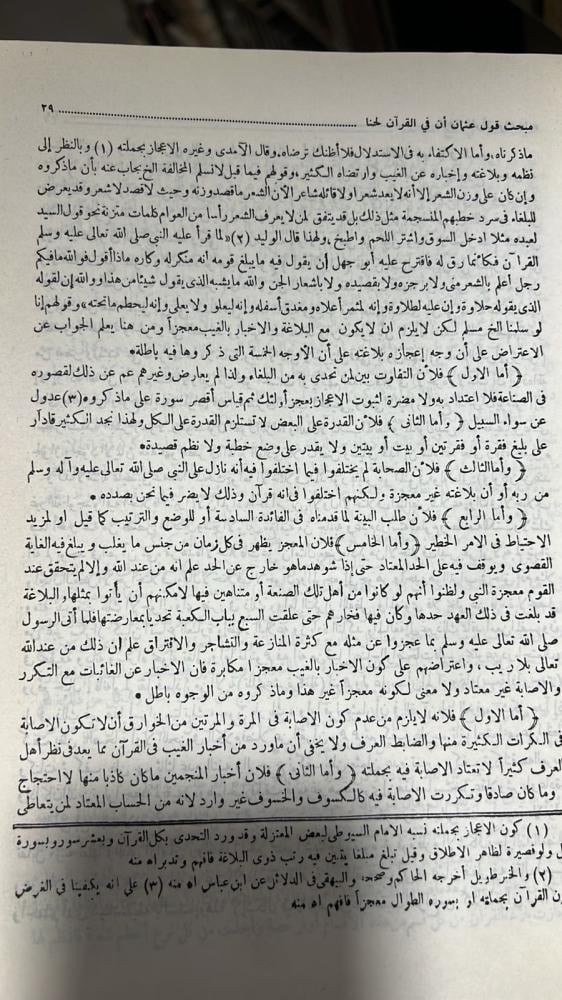 مبحث قول عثمان أن في القرآن لحنا ........ ٢٩
ماذكرناه،وأما الاكتفاء به فى الاستدلال فلا أظنك ترضاه،وقال الآمدى وغيره الاعجاز بجملته (١) وبالنظر إلى
نظمه وبلاغته وإخباره عن الغيب وارتضاه الكثير،وقولهم فيما قبل لانسلم المخالفة الخ يجاب عنه بأن ماذكروه
وإن كان على وزن الشعر إلا أنه لا يعد شعرا ولا قائله شاعر الآن الشعر ماقصد وزنه وحيث لاقصد لاشعر وقد يعرض
للبلغاء فى سرد خطبهم المنسجمة مثل ذلك بل قد يتفق لمن لا يعرف الشعر رأسا من العوام كلمات متزنة نحو قول السيد
لعبده مثلا ادخل السوق واشتر اللحم واطبخ ،ولهذا قال الوليد (٢)«لما قرأ عليه النبى صلى الله تعالى عليه وسلم
القرآن فكأنما رق له فاقترح عليه أبو جهل أن يقول فيه مايبلغ قومه أنه منكر له وكاره ماذا أقول فوالله مافيكم
رجل أعلم بالشعر منى ولا برجزه ولا بقصيده ولا باشعار الجن والله مايشبه الذى يقول شيئا من هذا ووالله إن لقوله
الذى يقوله حلاوة وإن عليه لطلاوة وإنه لمثمر أعلاه ومغدق أسفله وإنه ليعلو ولا يعلى وإنه ليحطم ماتحته» وقولهم إنا
لو سلمنا الخ مسلم لكن لايلزم ان لا يكون مع البلاغة والاخبار بالغيب معجزاً ومن هنا يعلم الجواب عن
الاعتراض على أن وجه إعجازه بلاغته على أن الأوجه الخمسة التى ذكروها فيه باطلة*
﴿ أما الاول ﴾ فلأن التفاوت بين لمن تحدى به من البلغاء ولذا لم يعارض وغيرهم عم عن ذلك لقصوره
فى الصناعة فلا اعتداد به ولا مضرة لثبوت الاعجاز بعجز أولئك ثم قياس أقصر سورة على ماذكروه (٣) عدول
عن سواء السبيل ﴿ وأما الثانى ﴾ فلأن القدرة على البعض لا تستلزم القدرة على الكل ولهذا نجد الكثير قادرا
على بليغ فقرة أو فقرتين أو بيت أو بيتين ولا يقدر على وضع خطبة ولا نظم قصيدة*
﴿ وأما الثالث ﴾ فلأن الصحابة لم يختلفوا فيما اختلفوا فيه أنه نازل على النبى صلى الله تعالى عليه وآله وسلم
من ربه أو أن بلاغته غير معجزة ولكنهم اختلفوا فى انه قرآن وذلك لا يضر فيما نحن بصدده *
﴿ وأما الرابع ﴾ فلأن طلب البينة لما قدمناه فى الفائدة السادسة أو للوضع والترتيب كما قيل او لمزيد
الاحتياط فى الامر الخطير ﴿ وأما الخامس ﴾ فلان المعجز يظهر فى كل زمان من جنس ما يغلب ويبلغ فيه الغاية
القصوى ويوقف فيه على الحد المعتاد حتى إذا شوهد ماهو خارج عن الحد علم انه من عند الله وإلا لم يتحقق عند
القوم معجزة النبى ولظنوا أنهم لو كانوا من أهل تلك الصنعة أو متناهين فيها لامكنهم أن يأتوا بمثلها، والبلاغة
قد بلغت فى ذلك العهد حدها وكان فيها فخارهم حتى علقت السبع بباب الكعبة تحديا بمعارضتها فلما أتى الرسول
صلى الله تعالى عليه وسلم بما عجزوا عن مثله مع كثرة المنازعة والتشاجر والافتراق علم ان ذلك من عند الله
تعالى بلا ريب ، واعتراضهم على كون الاخبار بالغيب معجزا مكابرة فان الاخبار عن الغائبات مع التكرر
والاصابة غير معتاد ولا معنى لكونه معجزاً غير هذا وماذكروه من الوجوه باطل *
﴿ أما الاول ﴾ فلانه لايلزم من عدم كون الاصابة فى المرة والمرتين من الخوارق أن لا تكون الاصابة
فى الكرات الكثيرة منها والضابط العرف ولا يخفى أن ماورد من أخبار الغيب فى القرآن مما يعد فى نظر أهل
العرف كثيراً لا تعتاد الاصابة فيه بجملته ﴿ وأما الثانى ﴾ فلان أخبار المنجمين ماكان كاذبا منها لا احتجاج
وما كان صادقا وتكررت الاصابة فيه كالكسوف والخسوف غير وارد لانه من الحساب المعتاد لمن يتعاطى
(١) كون الاعجاز بجملته نسبه الامام السيوطى لبعض المعتزلة وقد ورد التحدى بكل القرآن وبعشر سور وبسورة
ولو قصيرة لظاهر الاطلاق وقيل تبلغ مبلغا يتبين فيه رتب ذوى البلاغة فافهم وتدبر اه منه
(٢) والخبر طويل أخرجه الحاكم وصححه والبيهقى فى الدلائل عن ابن عباس اه منه (٣) على انه يكفينا فى الغرض
القرآن بجملته او بسوره الطوال معجزاً فافهم اه منه